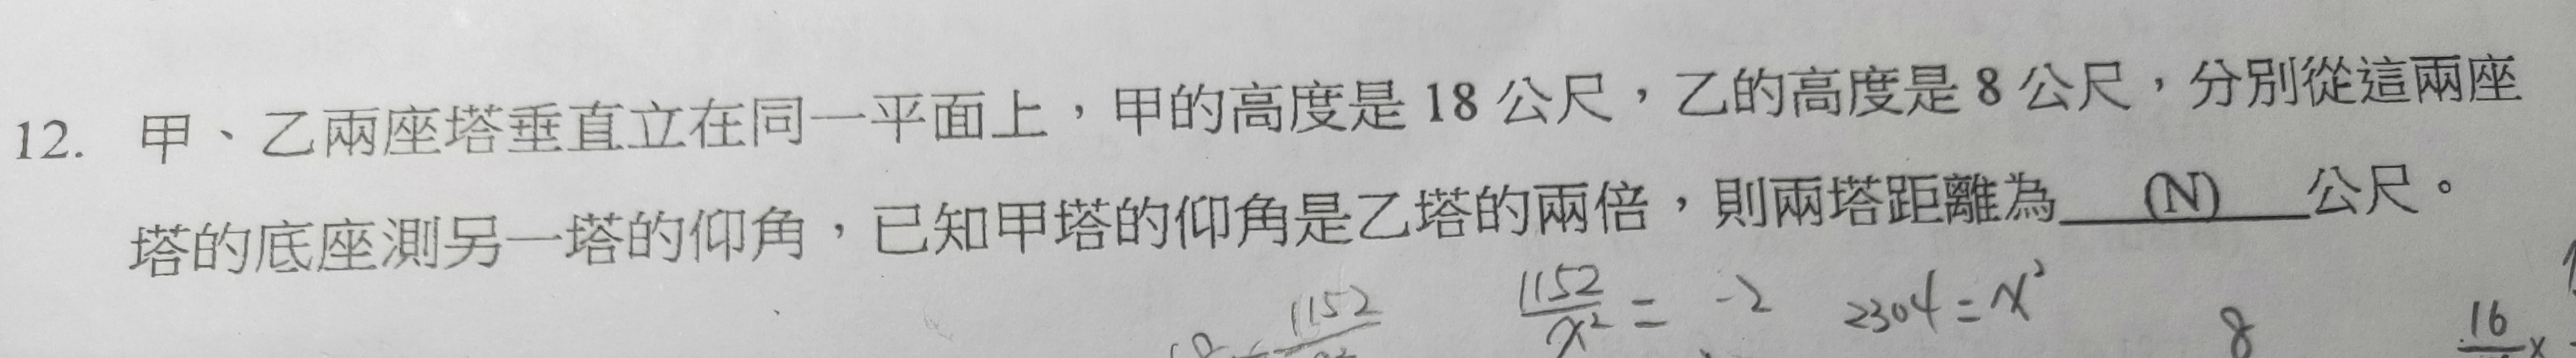 12. 甲、乙兩座塔垂直立在同一平面上，甲的高度是 18 公尺，乙的高度是 8 公尺，分別從這兩座
塔的底座測另一塔的仰角，已知甲塔的仰角是乙塔的兩倍，則兩塔距離為 (N) 公尺。
1152/x² = -2 2304 = x²
1152
8
16